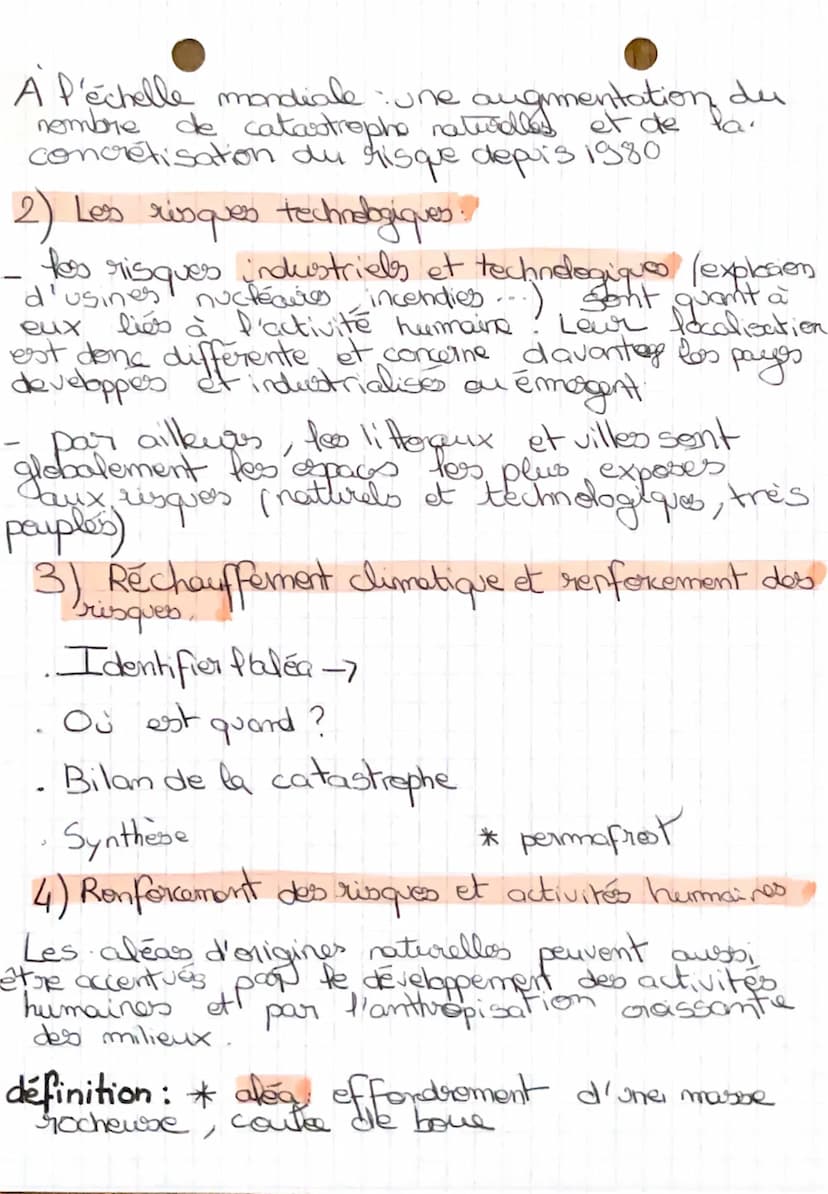 A l'échelle mondiale : une augmentation du
nombre de catastrophe naturelles et de la
concrétisation du risque depuis 1980
2) Les risques technologiques :
- les risques industriels et technologiques (explosion
d'usines nucléaires, incendies ...) sont quant à
eux liés à l'activité humaine. Leur localisation
est donc différente et concerne davantage les pays
developpés et industrialisés ou émergent.
- par ailleurs, les littoraux et villes sont
globalement les espaces les plus exposés
aux risques (naturels et technologiques, très
peuplés)
3) Réchauffement climatique et renforcement des
risques.
. Identifier l'aléa →
. Où est quand ?
. Bilan de la catastrophe
. Synthèse * permafrost
4) Renforcement des risques et activités humaines
Les aléas d'origines naturelles peuvent aussi
être accentués par le développement des activités
humaines et par l'anthropisation croissante
des milieux.
définition : * aléa: effondrement d'une masse
rocheuse, coulée de boue